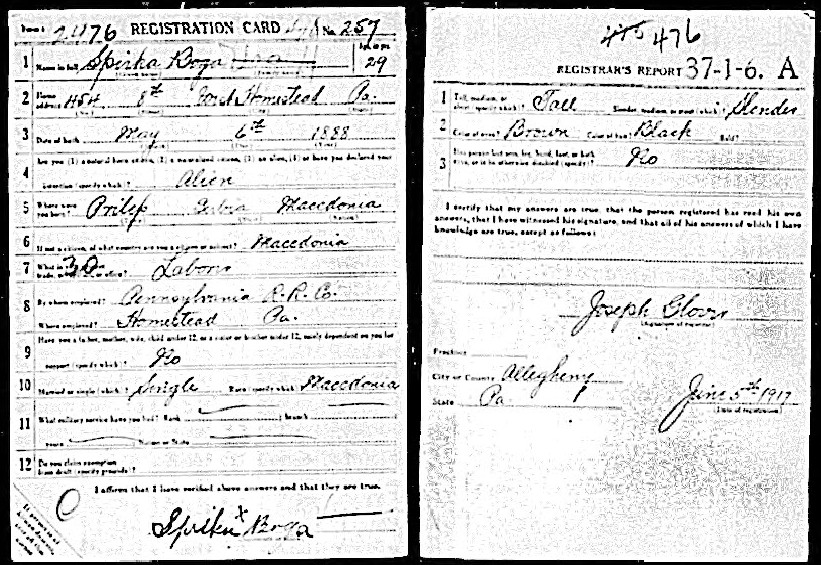 Form 1 2476 REGISTRATION CARD No. 257
1 Name in full Spirka Boga Age, in yrs. 29
2 Home address 454 8th West Homestead Pa.
3 Date of birth May 6th 1888
Are you (1) a natural born citizen, (2) a naturalized citizen, (3) an alien, (4) or have you declared your
4 intention (specify which)? Alien
5 Where were you born? Prilip Serbia Macedonia
6 If not a citizen, of what country are you a citizen or subject? Macedonia
7 What is your present trade, occupation, or office? 30 Labor
8 By whom employed? Pennsylvania R.R. Co.
Where employed? Homestead Pa.
Have you a father, mother, wife, child under 12, or a sister or brother under 12, solely dependent on you for
9 support (specify which)? No
10 Married or single (which)? Single Race (specify which)? Macedonia
11 What military service have you had? Rank branch
years Nation or State
12 Do you claim exemption from draft (specify grounds)?
I affirm that I have verified above answers and that they are true.
Spirku x Boga
475 476
REGISTRAR'S REPORT 37-1-6. A
1 Tall, medium, or short (specify which)? Tall Slender, medium, or stout (which)? Slender
2 Color of eyes? Brown Color of hair? Black Bald?
3 Has person lost arm, leg, hand, foot, or both eyes, or is he otherwise disabled (specify)? No
I certify that my answers are true, that the person registered has read his own
answers, that I have witnessed his signature, and that all of his answers of which I have
knowledge are true, except as follows:
Joseph Glover
(Signature of registrar)
Precinct
City or County Allegheny
State Pa.
June 5th 1917
(Date of registration)